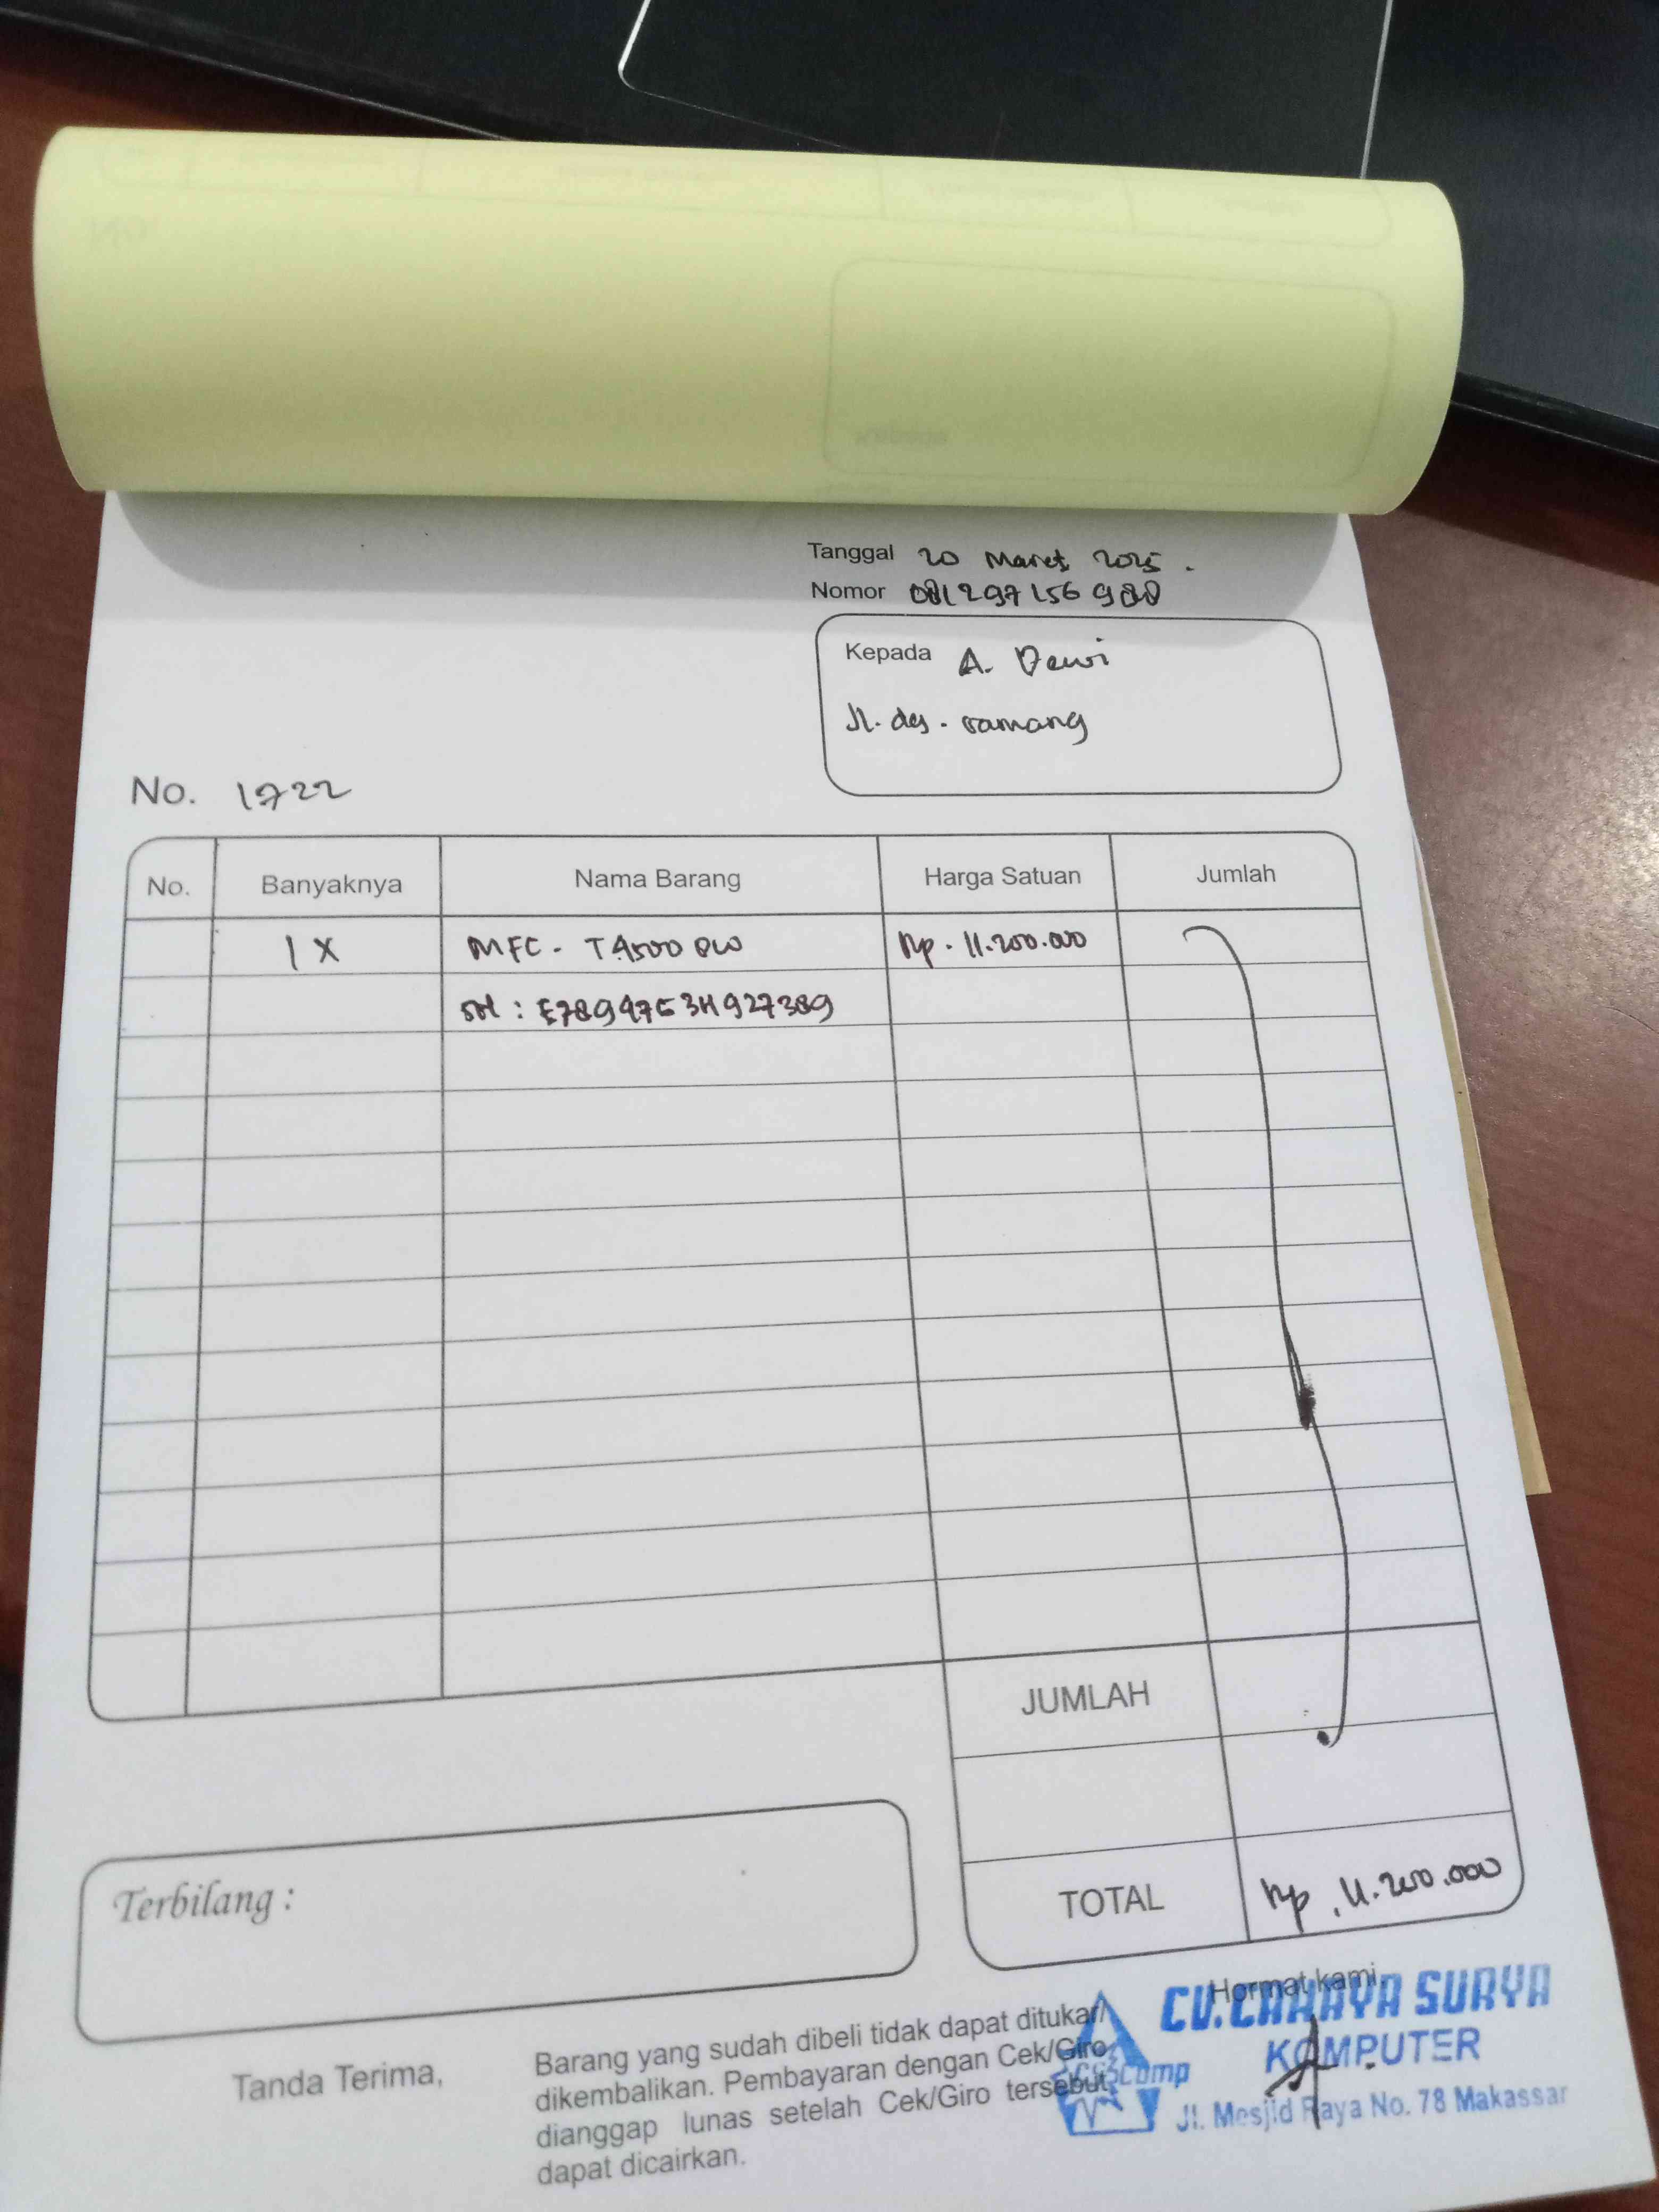 Tanggal 20 Maret 2025.
Nomor 081297156988
Kepada A. Dewi
Jl. dg. ramang
No. 1722
No. Banyaknya Nama Barang Harga Satuan Jumlah
1 X MFC - T4500 DW Rp. 11.200.000
SN : E78947G3H927389
JUMLAH
TOTAL Rp. 11.200.000
Terbilang :
Hormat kami
CV. CAHAYA SURYA
KOMPUTER
CS Comp
Jl. Mesjid Raya No. 78 Makassar
Tanda Terima,
Barang yang sudah dibeli tidak dapat ditukar/
dikembalikan. Pembayaran dengan Cek/Giro
dianggap lunas setelah Cek/Giro tersebut
dapat dicairkan.